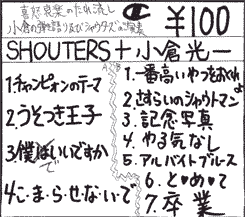 喜怒哀楽のたれ流し
小倉の弾き語り及びシャウターズの演奏
¥100
SHOUTERS+小倉光一
1.チャンピオンのテーマ
2.うそつき王子
3.僕はいいですか
4.こ・ま・ら・せ・な・い・で
1.一番高いやつをおくれよ
2.さすらいのシャウトマン
3.記念写真
4.やる気なし
5.アルバイトブルース
6.と♥め♥て
7.卒業